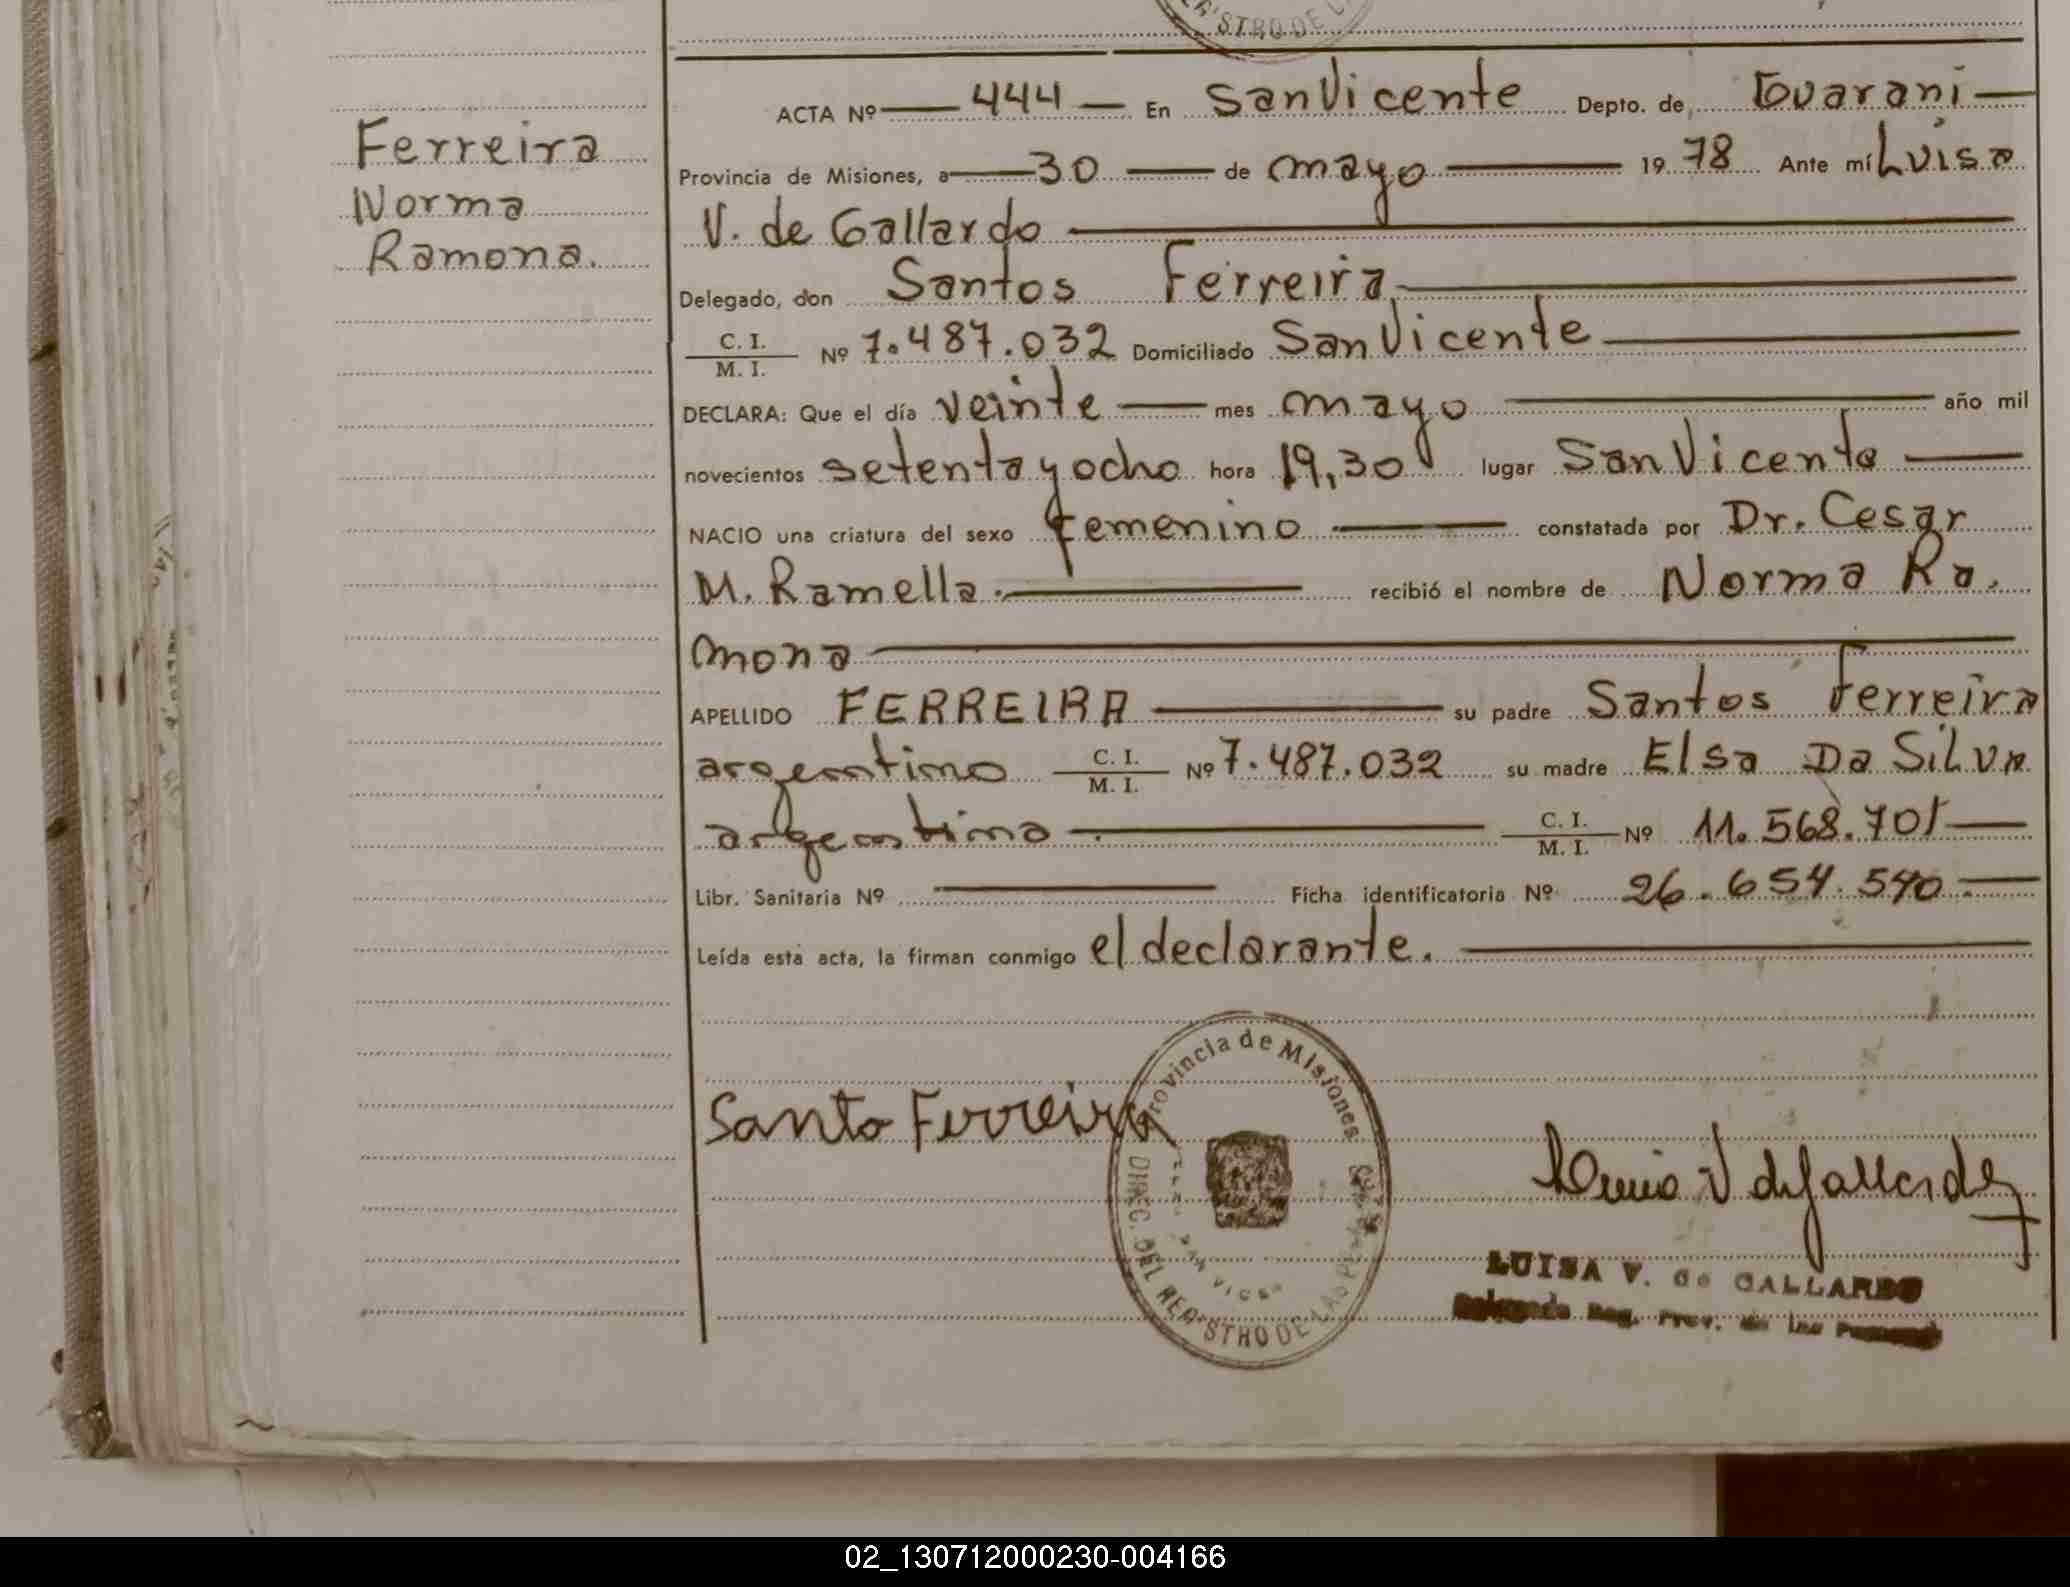 Ferreira
Norma
Ramona.
ACTA Nº 444 En San Vicente Depto. de Guarani
Provincia de Misiones, a 30 de mayo 19 78 Ante mí Luisa
V. de Gallardo
Delegado, don Santos Ferreira
C. I. / M. I. Nº 7.487.032 Domiciliado San Vicente
DECLARA: Que el día veinte mes mayo año mil
novecientos setenta y ocho hora 19,30 lugar San Vicente
NACIO una criatura del sexo femenino constatada por Dr. Cesar
M. Ramella. recibió el nombre de Norma Ra.
mona
APELLIDO FERREIRA su padre Santos Ferreira
argentino C. I. / M. I. Nº 7.487.032 su madre Elsa Da Silva
argentina C. I. / M. I. Nº 11.568.701
Libr. Sanitaria Nº Ficha identificatoria Nº 26.654.540
Leída esta acta, la firman conmigo el declarante.
Santo Ferreira
Provincia de Misiones
DIREC. DEL REGISTRO DE LAS
Luisa V de Gallardo
LUISA V. de GALLARDO
Delegada Reg. Prov. de las Personas
02_130712000230-004166